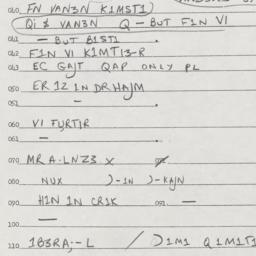 010 FN VAN3N K1MST1)
Qi & VAN3N Q - BUT F1N VI
011 - BUT B1ST1 .
012 F1N VI K1MT13-R
013 EC GAJT QAP ONLY PL
050 ER 1Z 1N DRHAJM
051 - .
060 VI FURT1R
061 - .
070 MR A.LNZ3 x
080 NUX )-1N )-KAJN
090 H1N 1N CR1K 091. -
100 -
110 1B3RA;-L / )1M1 Q1M1T1